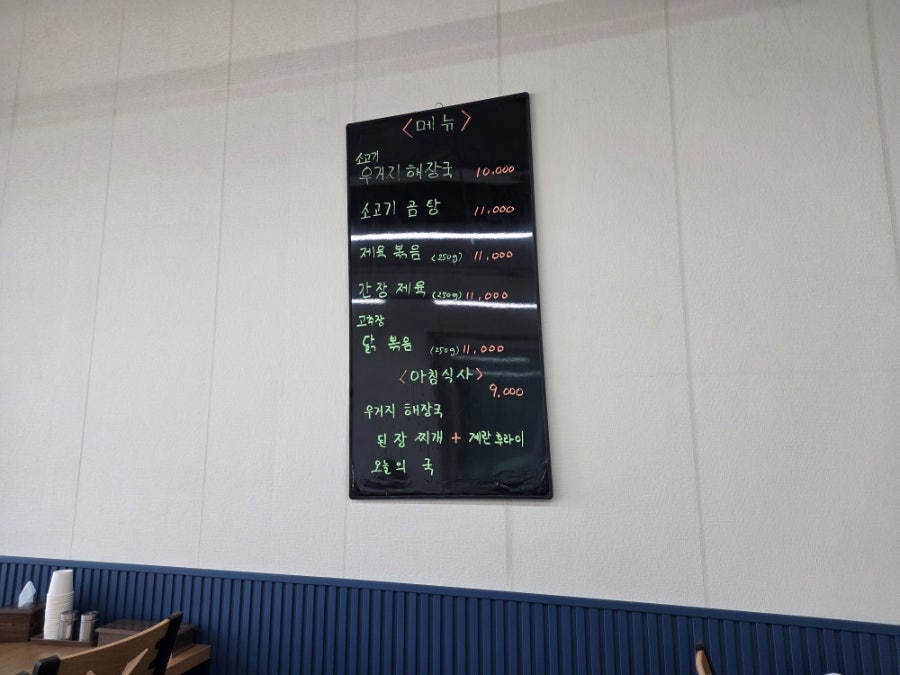 <메뉴>
소고기
우거지 해장국 10,000
소고기 곰탕 11,000
제육볶음 (250g) 11,000
간장제육 (250g) 11,000
고추장
닭볶음 (250g) 11,000
<아침식사>
9,000
우거지 해장국
된장찌개 + 계란후라이
오늘의 국